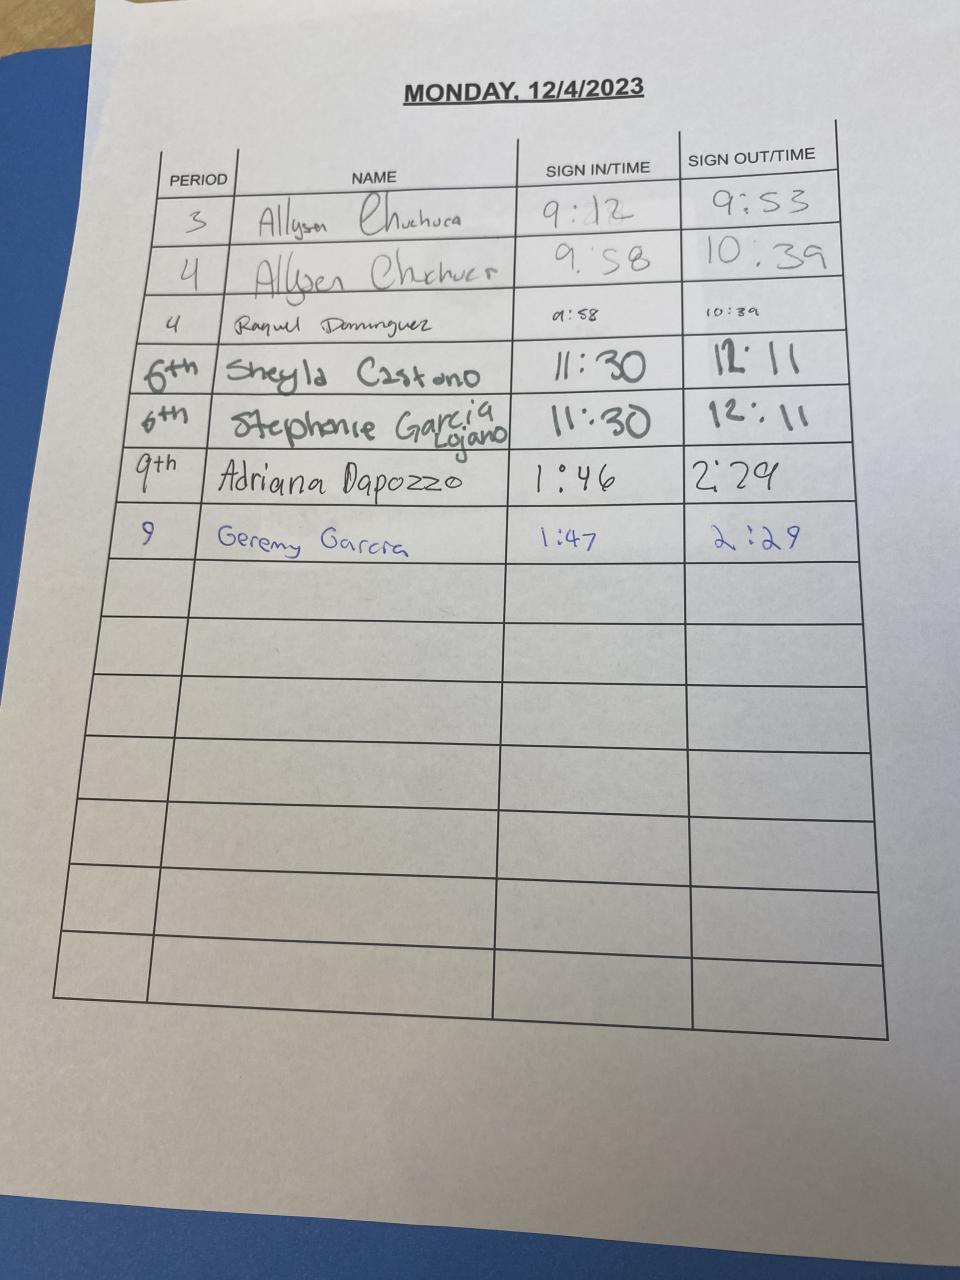 MONDAY, 12/4/2023
PERIOD NAME SIGN IN/TIME SIGN OUT/TIME
3 Allyson Chuchuca 9:12 9:53
4 Allyson Chuchuca 9:58 10:39
4 Raquel Dominguez 9:58 10:39
6th Sheyla Castano 11:30 12:11
6th Stephanie Garcia Lojano 11:30 12:11
9th Adriana Dapozzo 1:46 2:29
9 Geremy Garcia 1:47 2:29